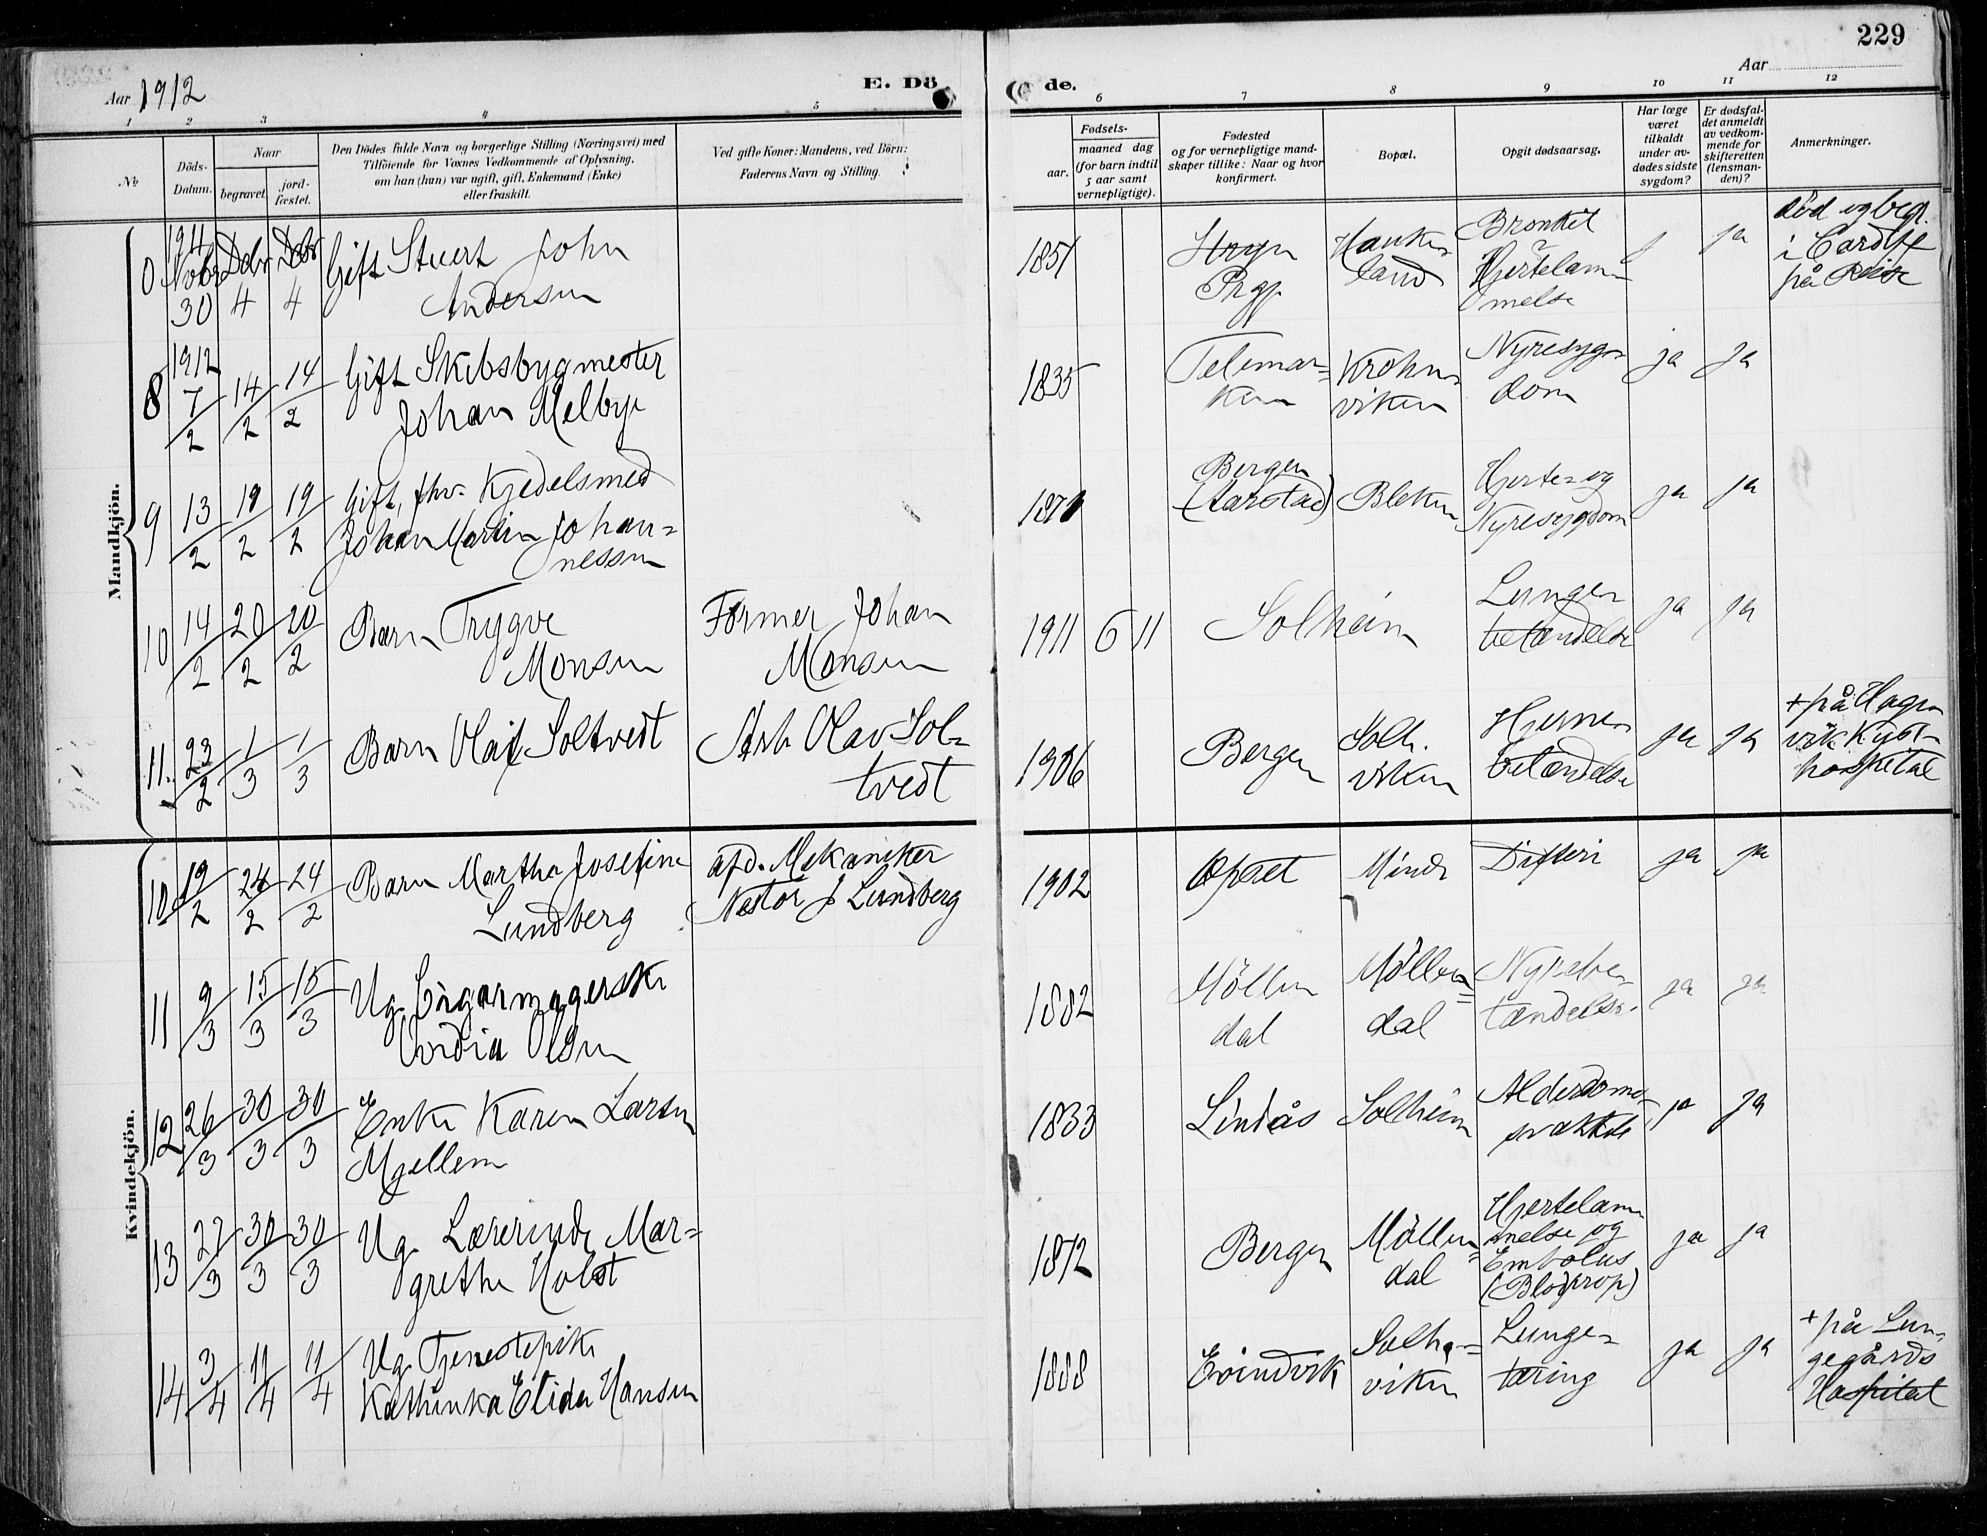 229
Aar 1912
E. Dö
de.
Aar
1 2 3 4 5 6 7 8 9 10 11 12
No
Döds-
Datum.
Naar
begravet.
jord-
fæstet.
Den Dödes fulde Navn og borgerlige Stilling (Næringsvei) med
Tilföiende for Voxnes Vedkommende af Oplysning,
om han (hun) var ugift, gift, Enkemand (Enke)
eller fraskilt.
Ved gifte Koner: Mandens, ved Börn:
Faderens Navn og Stilling.
Fødsels-
aar.
maaned dag
(for barn indtil
5 aar samt
vernepligtige).
Fødested
og for vernepligtige mand-
skaper tillike: Naar og hvor
konfirmert.
Bopæl.
Opgit dødsaarsag.
Har læge
været
tilkaldt
under av-
dødes sidste
sygdom?
Er dødsfal-
det anmeldt
av vedkom-
mende for
skifteretten
(lensman-
den)?
Anmerkninger.
Mandkjön.
0 1911 Novbr 30 Debr 4 Debr 4 Gift Stuert John
Andersen
1851
Prgj.
Haukeland
Bronkit
Hjertelam-
melse
ja
død og begr.
i Cardiff
på Reise
8 1912 7/2 14/2 14/2 Gift Skibsbygmester
Johan Melbye
1835
Telemar-
ken
Krohn-
viken
Nyresyg-
dom
ja ja
9 13/2 19/2 19/2 Gift, fhv. Kjedelsmed
Johan Martin Johan-
nessen
1871
Bergen
(Aarstad)
Bleken
Hjerte- og
Nyresygdom
ja ja
10 14/2 20/2 20/2 Barn Trygve
Monsen
Former Johan
Monsen
1911 6 11
Solheim
Lunge-
betændelse
ja ja
11. 23/2 1/3 1/3 Barn Olaf Soltvedt
Arb. Olav Sol-
tvedt
1906
Bergen
Solh.
viken
Hjerne-
betændelse
ja ja
+ på Hage-
vik Kyst-
hospital
Kvindekjön.
10 19/2 24/2 24/2 Barn Martha Josefine
Lundberg
afd. Mekaniker
Nestor J Lundberg
1902
Minde
Difteri
ja ja
11 9/3 15/3 15/3 Ug. Cigarmagerske
Ovidia Olsen
1882
Möllen
dal
Möllen-
dal
Nyrebe-
tændelse.
ja ja
12 26/3 30/3 30/3 Enke Karen Larsen
Mjellem
1833
Lindås
Solheim
Alderdoms-
svækkelse
ja ja
13 27/3 30/3 30/3 Ug. Lærerinde Mar-
grethe Holst
1872
Bergen
Möllen-
dal
Hjertelam-
melse og
Embolus
(Blodprop)
ja ja
14 3/4 11/4 11/4 Ug. Tjenestepike
Kathinka Elida Hansen
1888
Evindvik
Solhe-
viken
Lunge-
tæring
ja ja
+ på Lun-
gegårds
Hospital